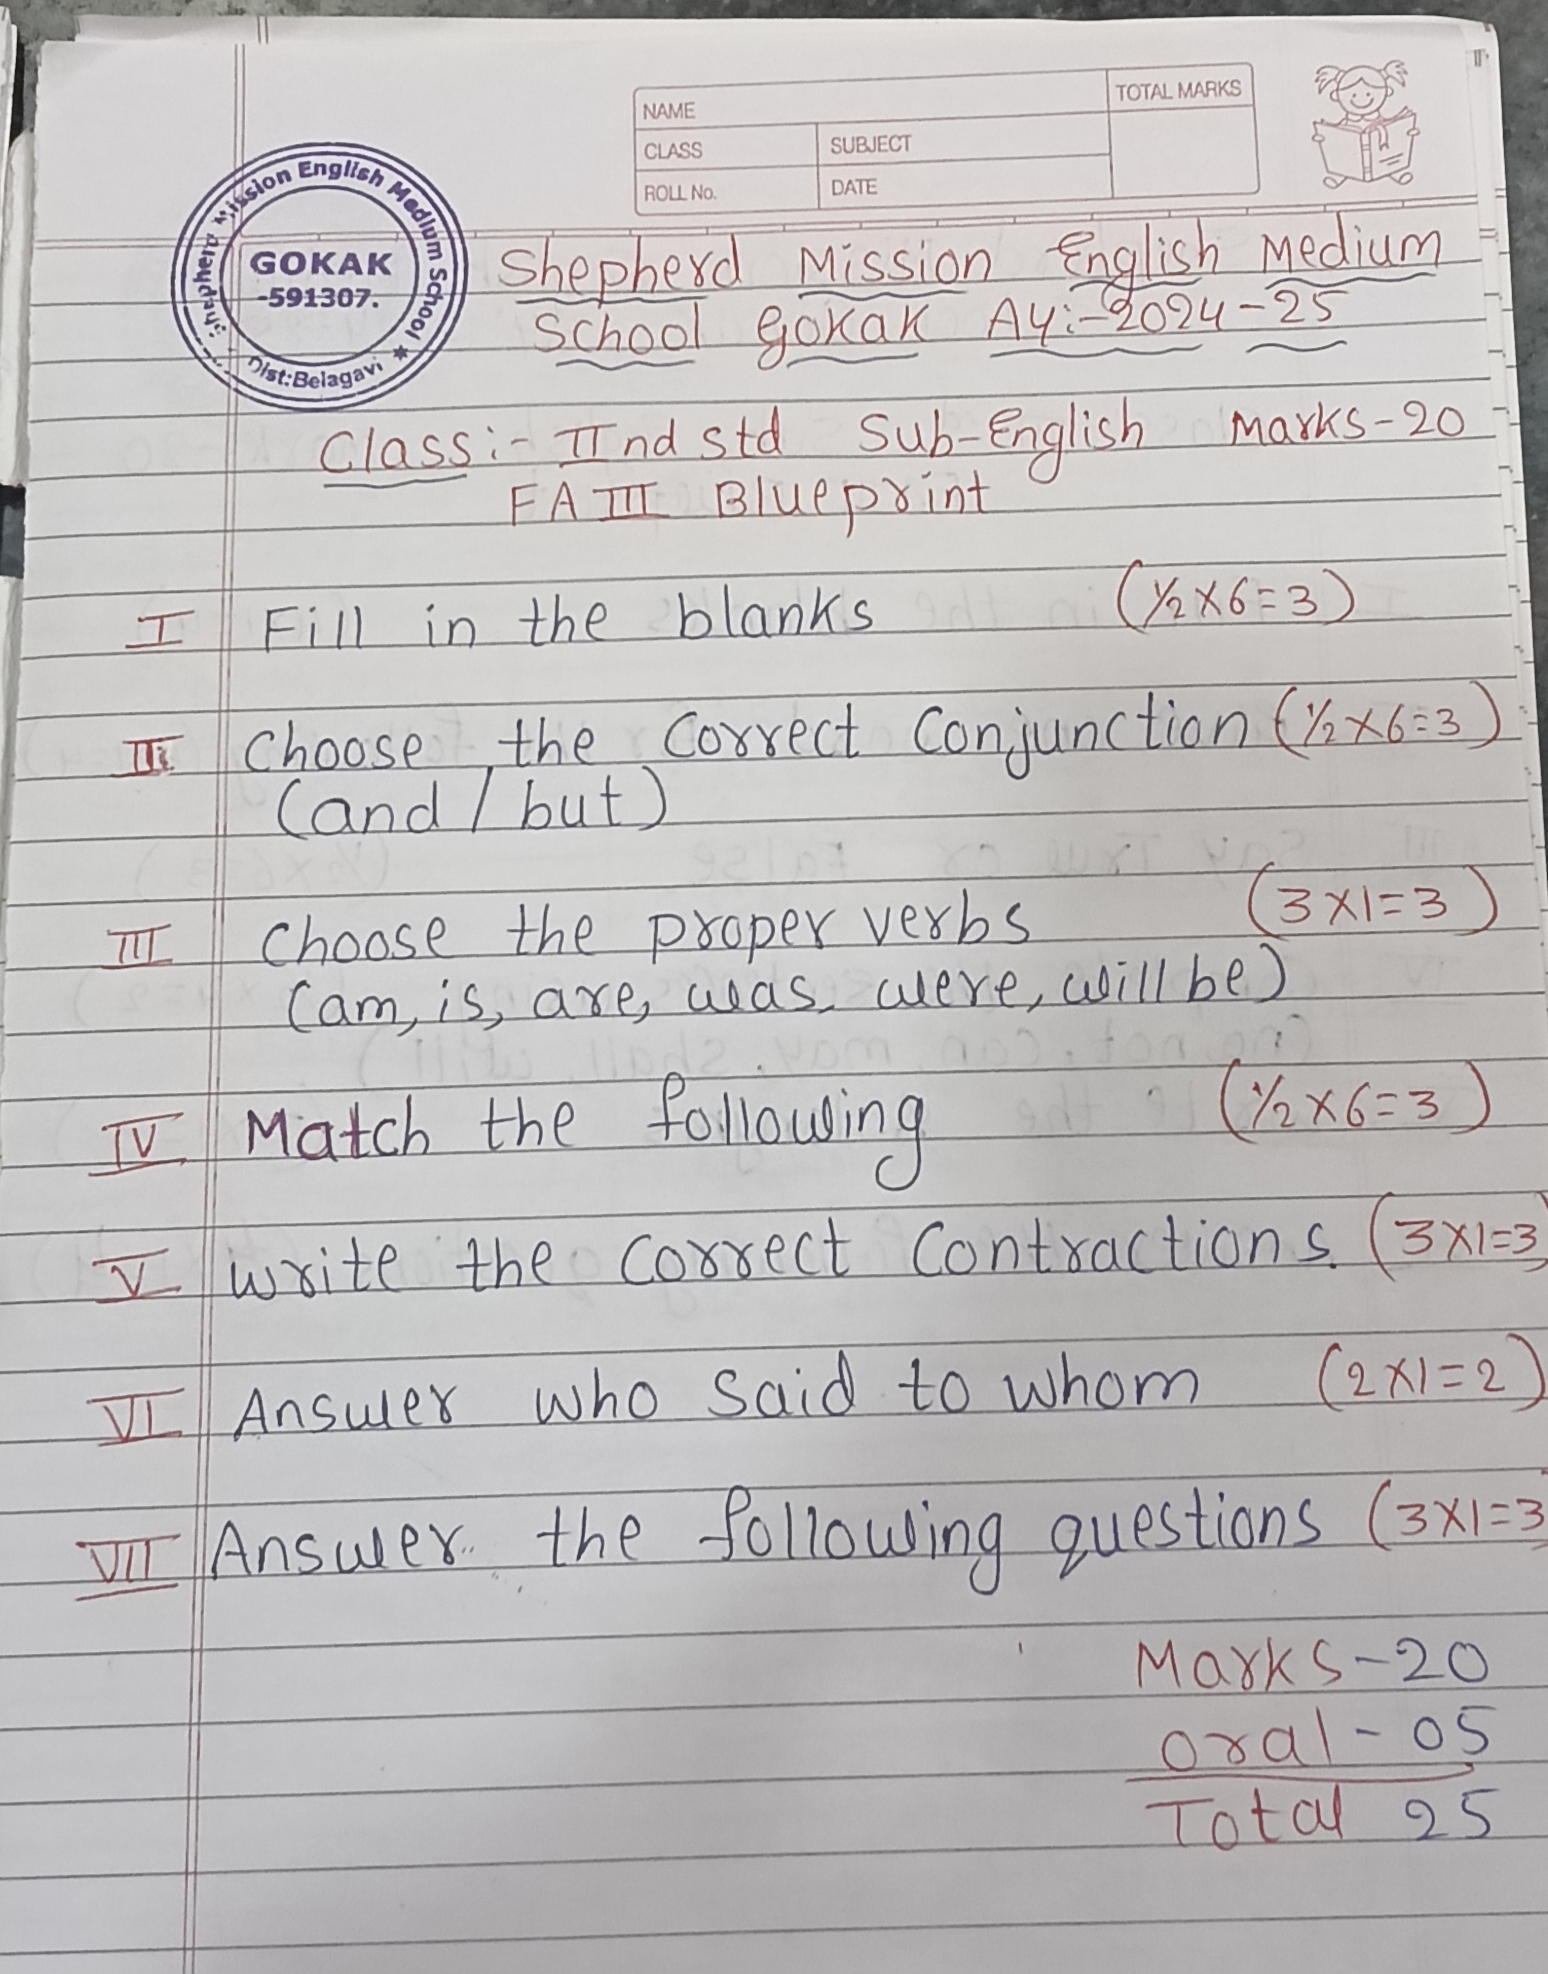 NAME
TOTAL MARKS
CLASS
SUBJECT
ROLL No.
DATE
Shepherd Mission English Medium School
GOKAK
-591307.
Dist:Belagavi
Shepherd Mission English Medium
School Gokak AY:-2024-25
Class:- IInd std Sub-English Marks-20
FA III Blueprint
I Fill in the blanks (1/2×6=3)
II Choose the Correct Conjunction (1/2×6=3)
(and / but)
III Choose the proper verbs (3×1=3)
(am, is, are, was, were, will be)
IV Match the following (1/2×6=3)
V Write the Correct Contractions. (3×1=3
VI Answer who said to whom (2×1=2)
VII Answer the following questions (3×1=3
Marks-20
Oral-05
Total 25